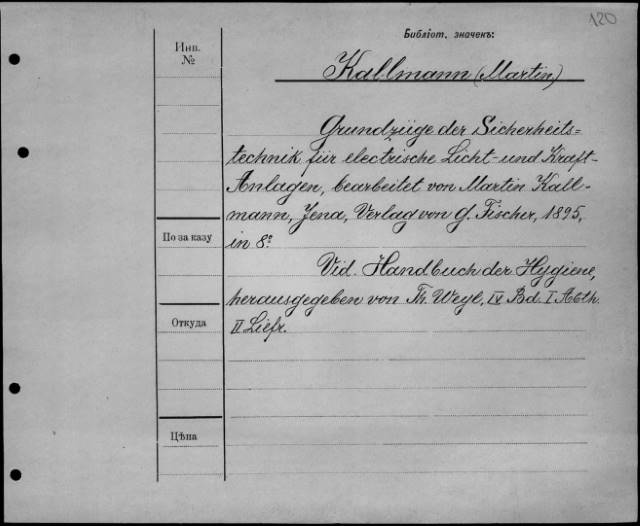 120
Библіот. значекъ:
Инв.
№
Kallmann (Martin)
Grundzüge der Sicherheits=
technik für electrische Licht- und Kraft-
Anlagen, bearbeitet von Martin Kall-
mann, Jena, Verlag von G. Fischer, 1895,
По заказу
in 8º
Vid. Handbuch der Hygiene,
herausgegeben von Th. Weyl, IV Bd. I Abth.
Откуда
II Liefr.
Цѣна